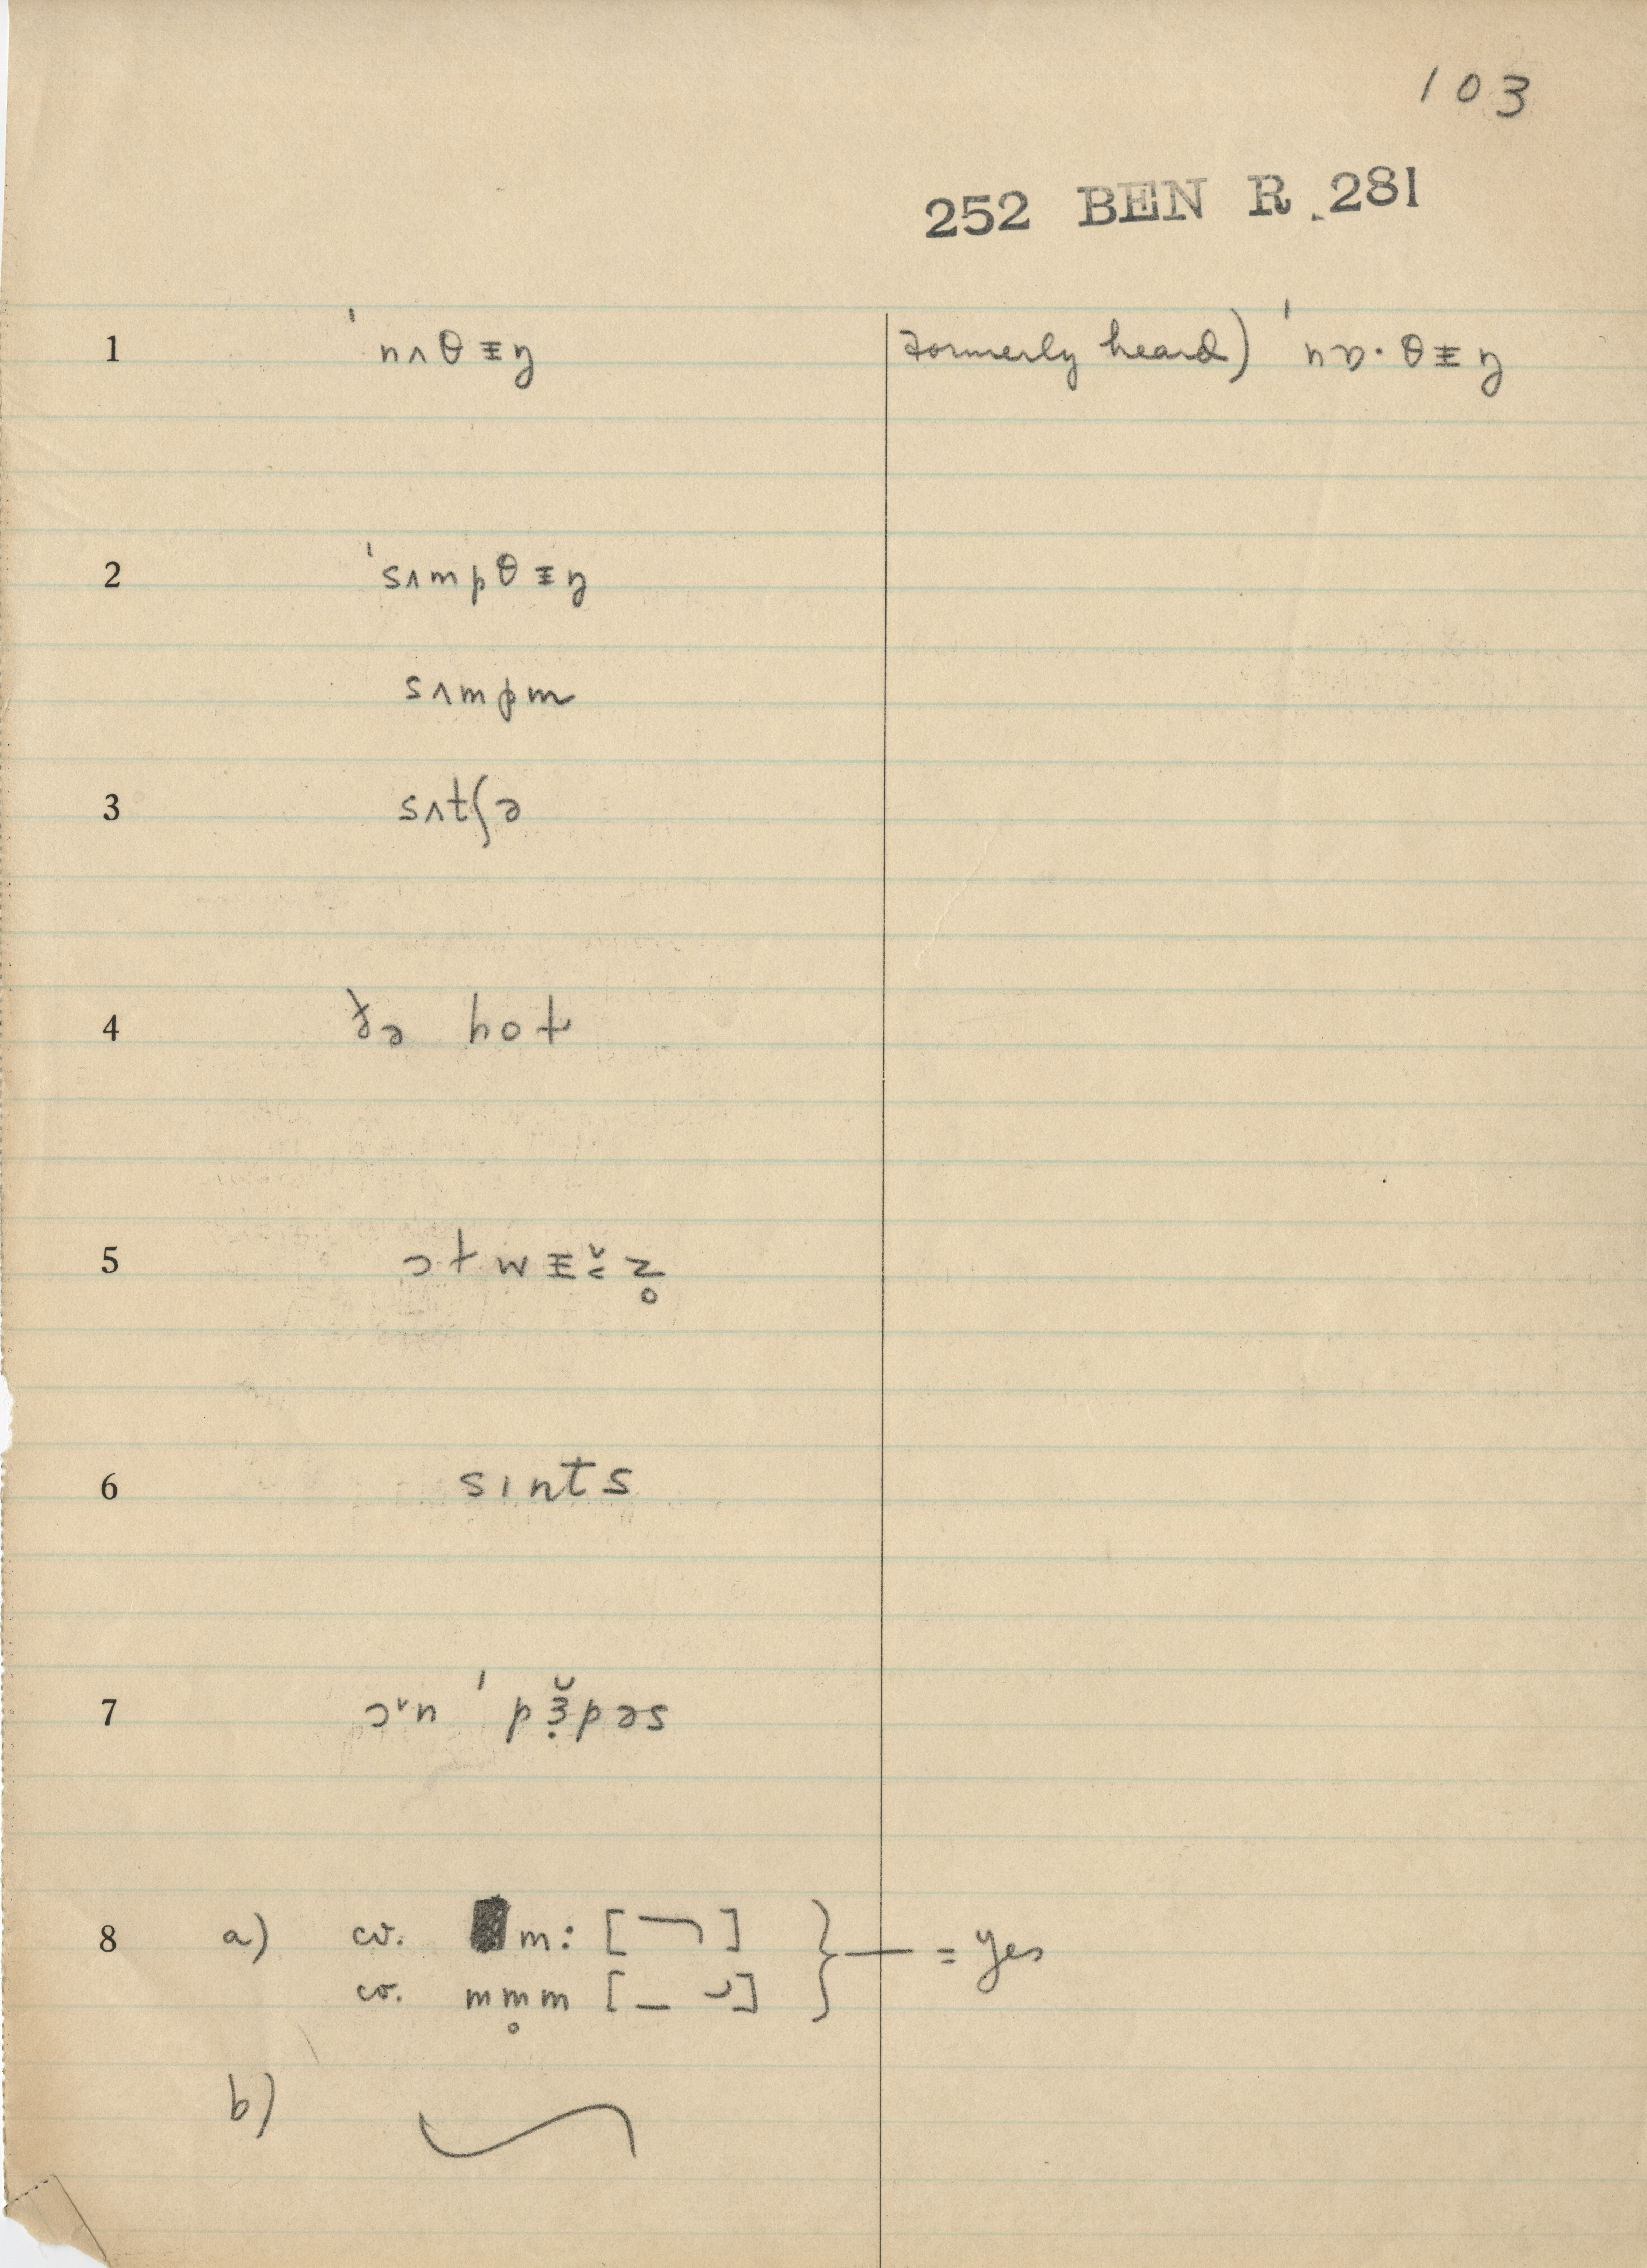 103
252 BEN R. 281
1 ˈnʌθᵻŋ formerly heard) ˈnɒ·θᵻŋ
2 ˈsʌmpθᵻŋ
sʌmpm
3 sʌtʃə
4 ðə hot
5 ɔtwᵻ˔˂z̥
6 sɪnts
7 ɔ˅n ˈpɜ̣̆pəs
8 a) cv. m: [ ] } — = yes
cv. mm̥m [ ]
b)